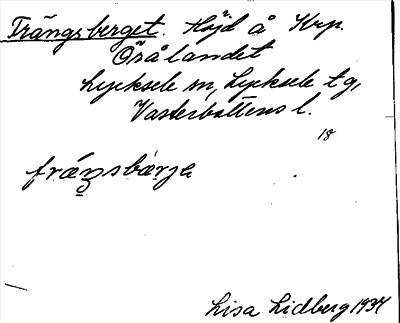 Trångsberget. Höjd å Krp.
Örålandet
Lycksele sn, Lycksele tg,
Västerbottens l.
18
Lisa Lidberg 1934